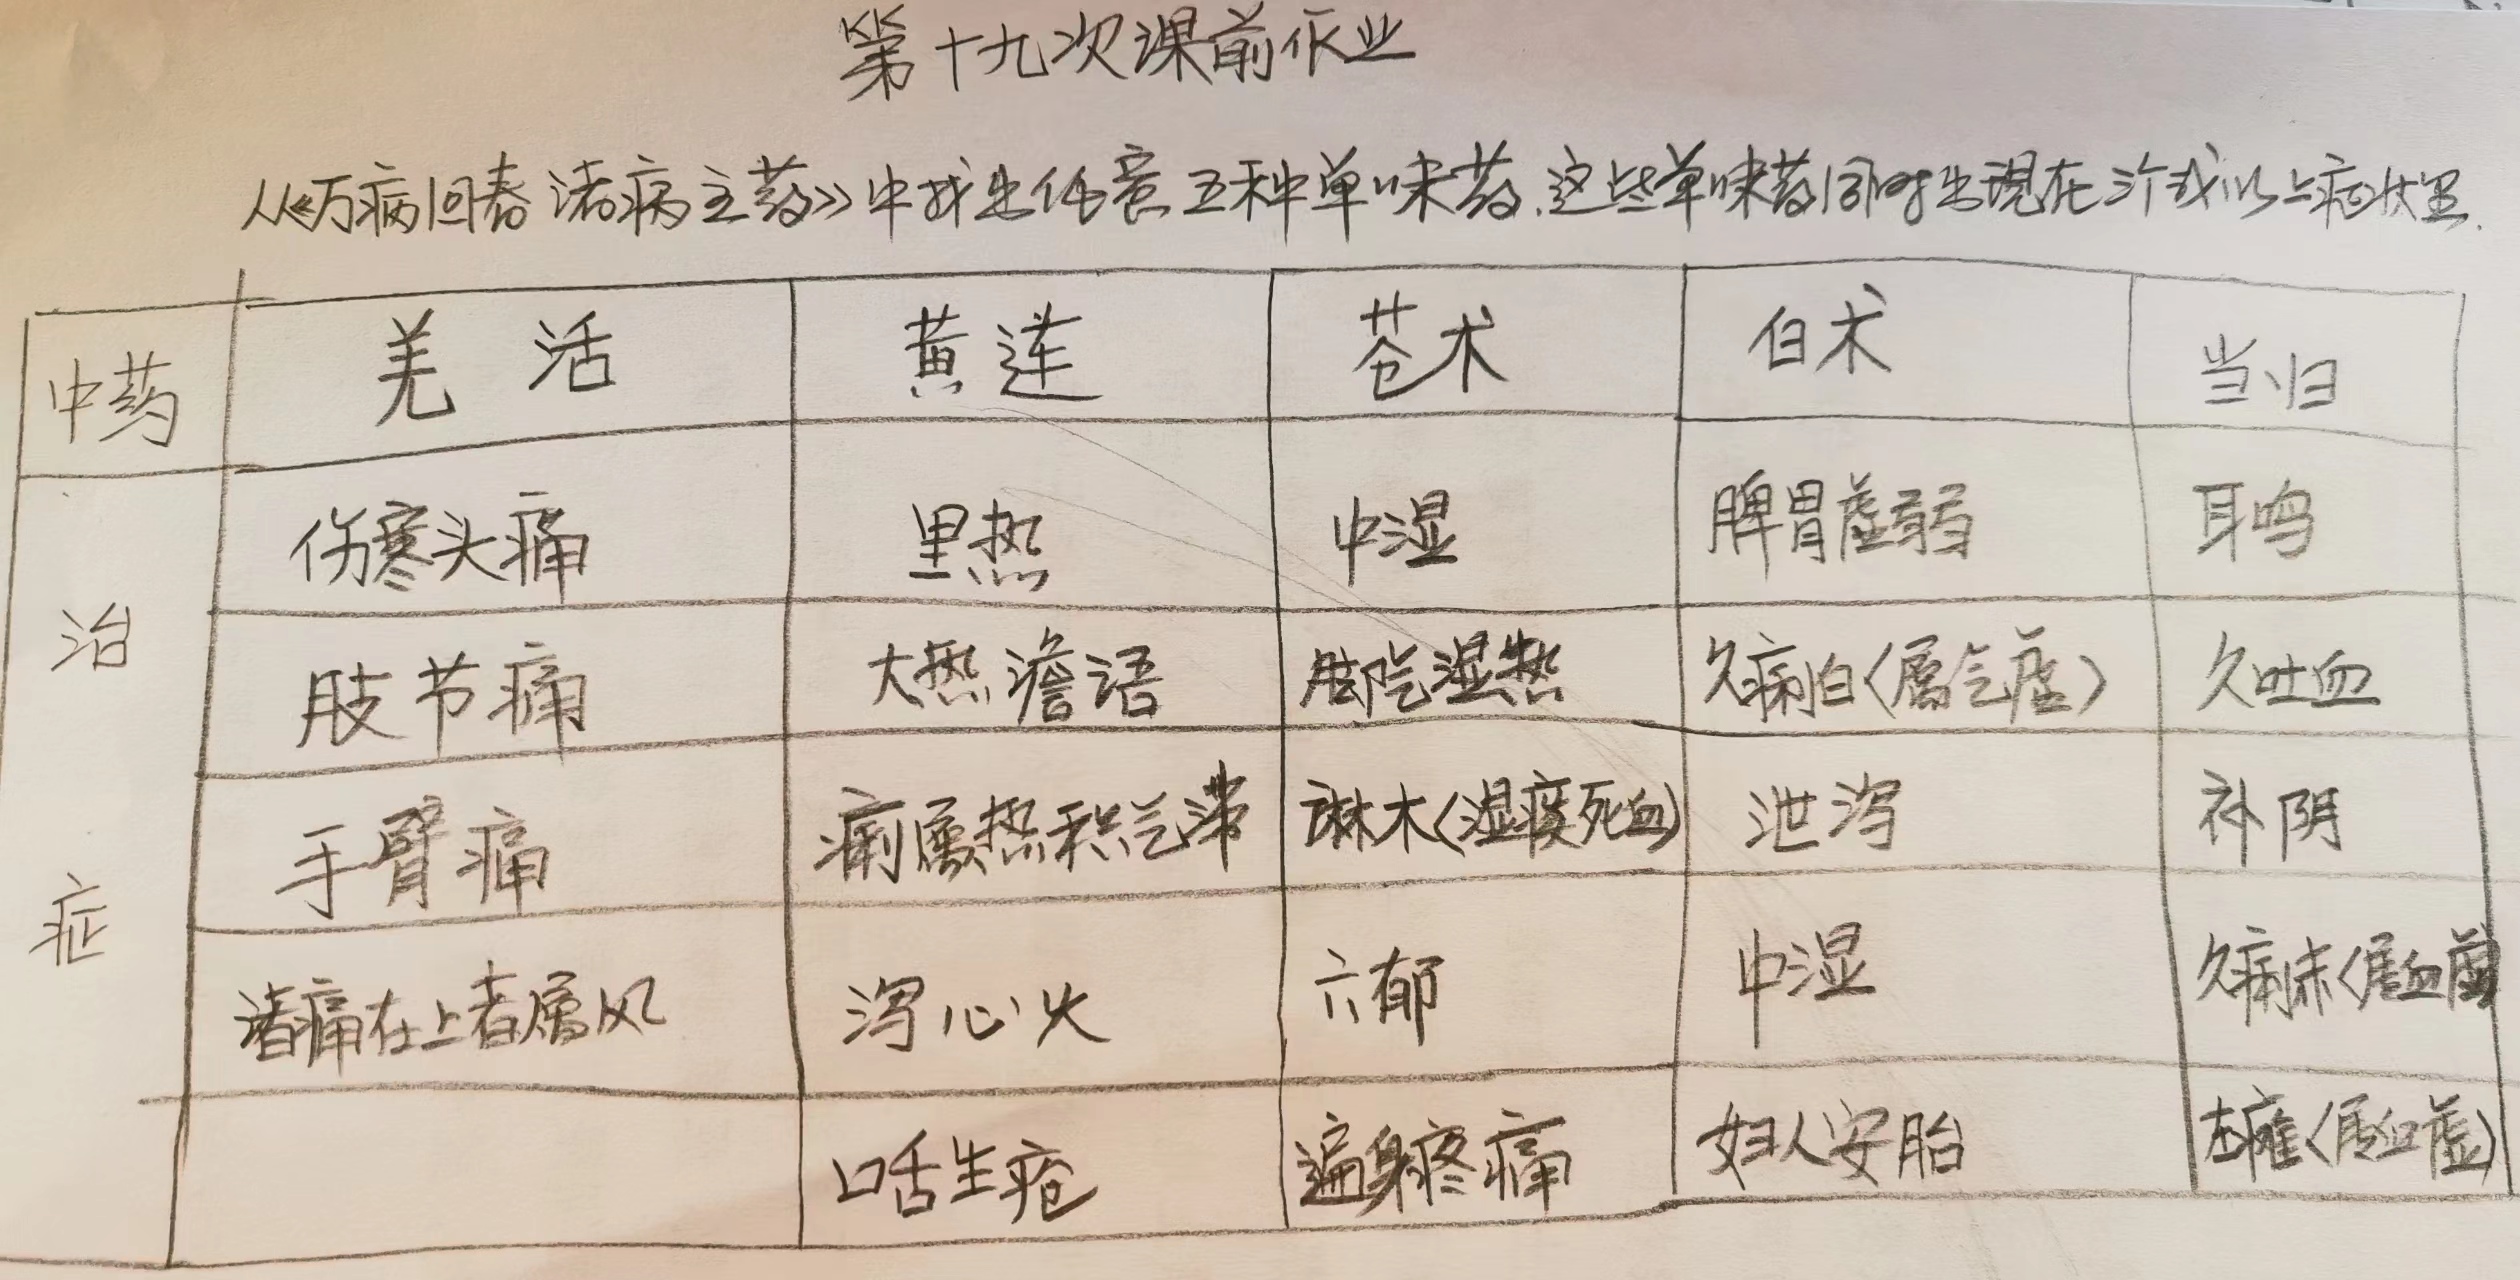 第十九次课前作业
从《万病回春 诸病主药》中找出任意五种单味药.这些单味药同时出现在三个或以上症状里.
中药 羌活 黄连 苍术 白术 当归
治症
伤寒头痛 里热 中湿 脾胃虚弱 耳鸣
肢节痛 大热谵语 脚气湿热 久痢白（属气虚） 久吐血
手臂痛 痢属热积气滞 麻木（湿痰死血） 泄泻 补阴
诸痛在上者属风 泻心火 六郁 中湿 久痢赤（属血虚
口舌生疮 遍身疼痛 妇人安胎 左瘫（属血虚）